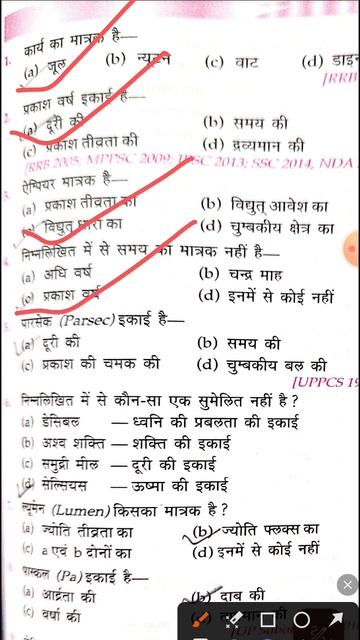 1. कार्य का मात्रक है—
(a) जूल (b) न्यूटन (c) वाट (d) डाइन
[RRB
2. प्रकाश वर्ष इकाई है—
(a) दूरी की (b) समय की
(c) प्रकाश तीव्रता की (d) द्रव्यमान की
[RRB 2005; MPPSC 2009; 2013; SSC 2014, NDA
3. ऐम्पियर मात्रक है—
(a) प्रकाश तीव्रता का (b) विद्युत् आवेश का
विद्युत् धारा का (d) चुम्बकीय क्षेत्र का
4. निम्नलिखित में से समय का मात्रक नहीं है—
(a) अधि वर्ष (b) चन्द्र माह
(c) प्रकाश वर्ष (d) इनमें से कोई नहीं
5. पारसेक (Parsec) इकाई है—
(a) दूरी की (b) समय की
(c) प्रकाश की चमक की (d) चुम्बकीय बल की
[UPPCS 19
निम्नलिखित में से कौन-सा एक सुमेलित नहीं है ?
(a) डेसिबल — ध्वनि की प्रबलता की इकाई
(b) अश्व शक्ति — शक्ति की इकाई
(c) समुद्री मील — दूरी की इकाई
(d) सेल्सियस — ऊष्मा की इकाई
ल्यूमेन (Lumen) किसका मात्रक है ?
(a) ज्योति तीव्रता का (b) ज्योति फ्लक्स का
(c) a एवं b दोनों का (d) इनमें से कोई नहीं
पास्कल (Pa) इकाई है—
(a) आर्द्रता की (b) दाब की
(c) वर्षा की